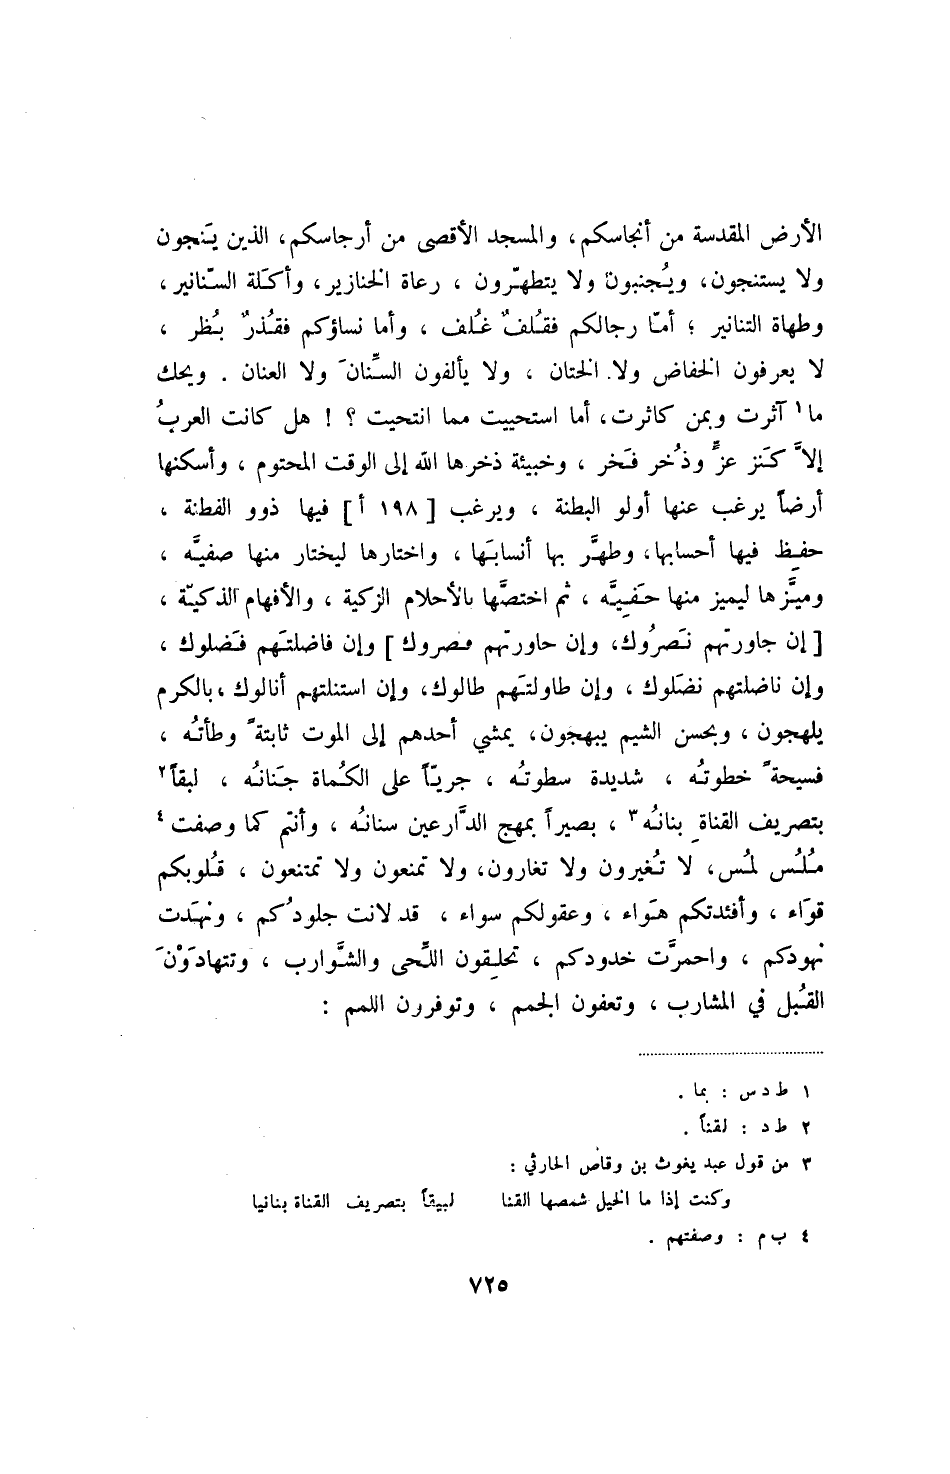 الأرض المقدسة من أنجاسكم، والمسجد الأقصى من أرجاسكم، الذين يَنجون
ولا يستنجون، ويُجنبون ولا يتطهّرون ، رعاة الخنازير، وأكلة السّنانير ،
وطهاة التنانير ؛ أمّا رجالكم فقُلفٌ غُلف ، وأما نساؤكم فقُذرٌ بُظر ،
لا يعرفون الخفاض ولا الختان ، ولا يألفون السِّنانَ ولا العنان . ويحك
ما١ آثرت وبمن كاثرت، أما استحييت مما انتحيت ؟ ! هل كانت العربُ
إلاَّ كَنز عزٍّ وذُخر فَخر ، وخبيئة ذخرها الله إلى الوقت المحتوم ، وأسكنها
أرضاً يرغب عنها أولو البطنة ، ويرغب [ ١٩٨ أ ] فيها ذوو الفطنة ،
حفِظ فيها أحسابها، وطهَّر بها أنسابَها ، واختارها ليختار منها صفيَّه ،
وميَّزها ليميز منها حَفِيَّه ، ثم اختصَّها بالأحلام الزكية ، والأفهام الذكيّة ،
[ إن جاورتهم نَصرُوك، وإن حاورتهم مصروك ] وإن فاضلتَهم فَضلوك ،
وإن ناضلتهم نضَلوك ، وإن طاولتَهم طالوك، وإن استنلتهم أنالوك ، بالكرم
يلهجون ، وبحسن الشيم يبهجون، يمشي أحدهم إلى الموت ثابتةً وطأتُه ،
فسيحةً خطوتُه ، شديدة سطوتُه ، جريّاً على الكُماة جَنانُه ، لبقاً٢
بتصريف القناةِ بنانُه٣ ، بصيراً بمهج الدَّارعين سنانُه ، وأنتم كما وصفت٤
مُلُس لمُس، لا تُغيرون ولا تغارون، ولا تمنعون ولا تمتنعون ، قُلوبكم
قوَاء ، وأفئدتكم هَواء ، وعقولكم سواء ، قد لانت جلودُكم ، ونهَدت
نهودكم ، واحمرَّت خدودكم ، تحلِقون اللِّحى والشَّوارب ، وتتهادَوْنَ
القُبل في المشارب ، وتعفون الجمم ، وتوفرون اللمم :
١ ط د س : بما .
٢ ط د : لقناً .
٣ من قول عبد يغوث بن وقاص الحارثي :
وكنت إذا ما الخيل شمصها القنا لبيقاً بتصريف القناة بنانيا
٤ ب م : وصفتهم .
٧٢٥